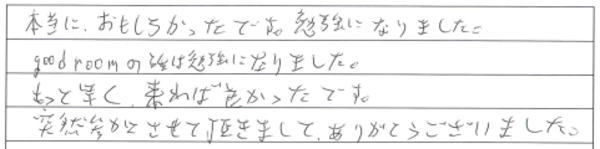 本当に、おもしろかったです。勉強になりました。
goodroomの話は勉強になりました。
もっと早く、来れば良かったです。
突然参加させて頂きまして、ありがとうございました。